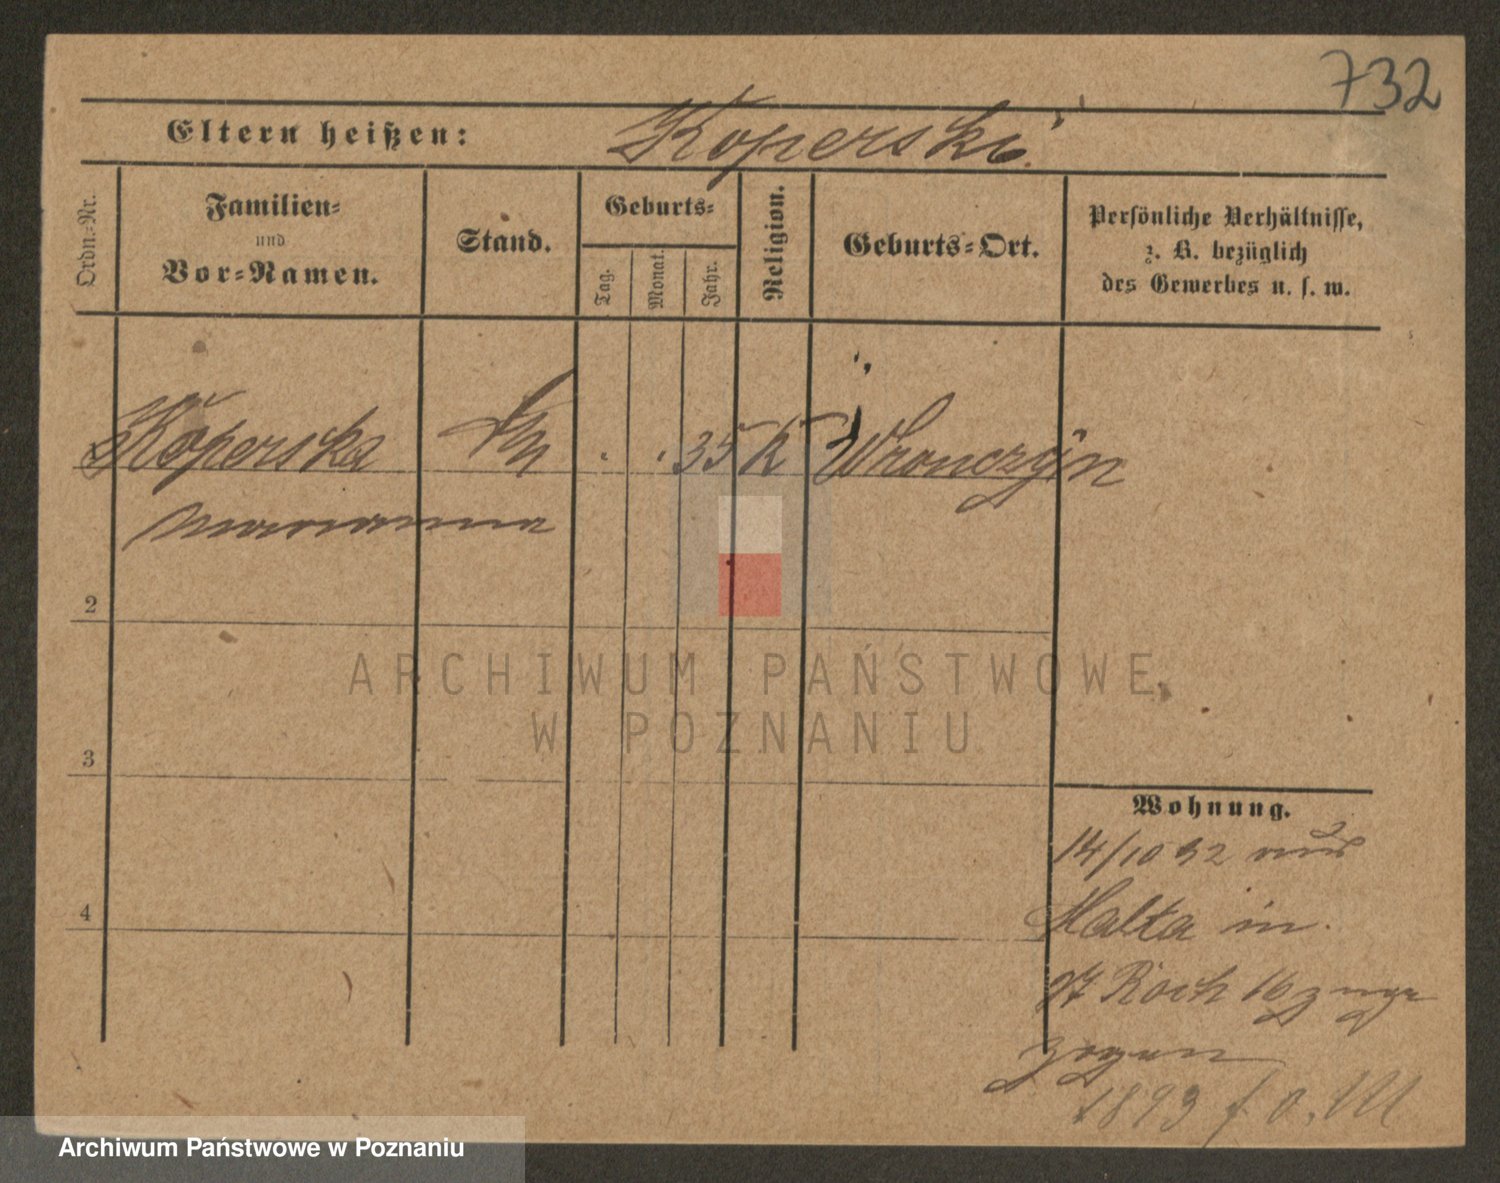 732
Eltern heißen: Koperski
Ordn.-Nr.
Familien-
und
Vor-Namen.
Stand.
Geburts-
Tag.
Monat.
Jahr.
Religion.
Geburts-Ort.
Persönliche Verhältnisse,
z. B. bezüglich
des Gewerbes u. s. w.
Koperska 35 K Wronczyn
Marianna
2
3
4
Wohnung.
14/10 92 aus
Malta in
St Roch 16 zuge
zogen
1893 f. o. M
ARCHIWUM PAŃSTWOWE
W POZNANIU
Archiwum Państwowe w Poznaniu